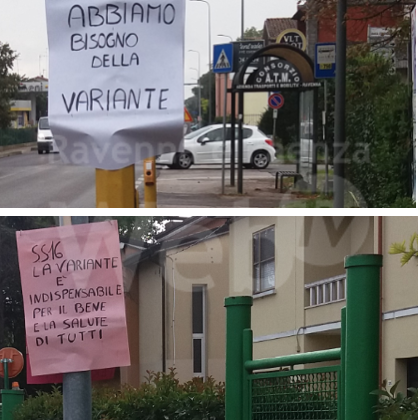 ABBIAMO
BISOGNO
DELLA
VARIANTE
VLT
CONSORZIO
A.T.M.
SS16
LA VARIANTE
E'
INDISPENSABILE
PER IL BENE
E LA SALUTE
DI TUTTI